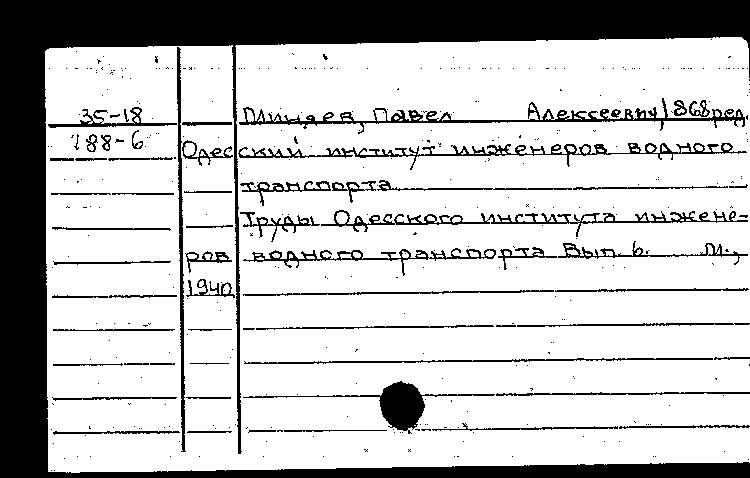 35-18 Миняев, Павел Алексеевич, 1868 ред.
188-6 Одесский институт инженеров водного
транспорта
Труды Одесского института инжене-
ров водного транспорта Вып. 6. М.,
1940